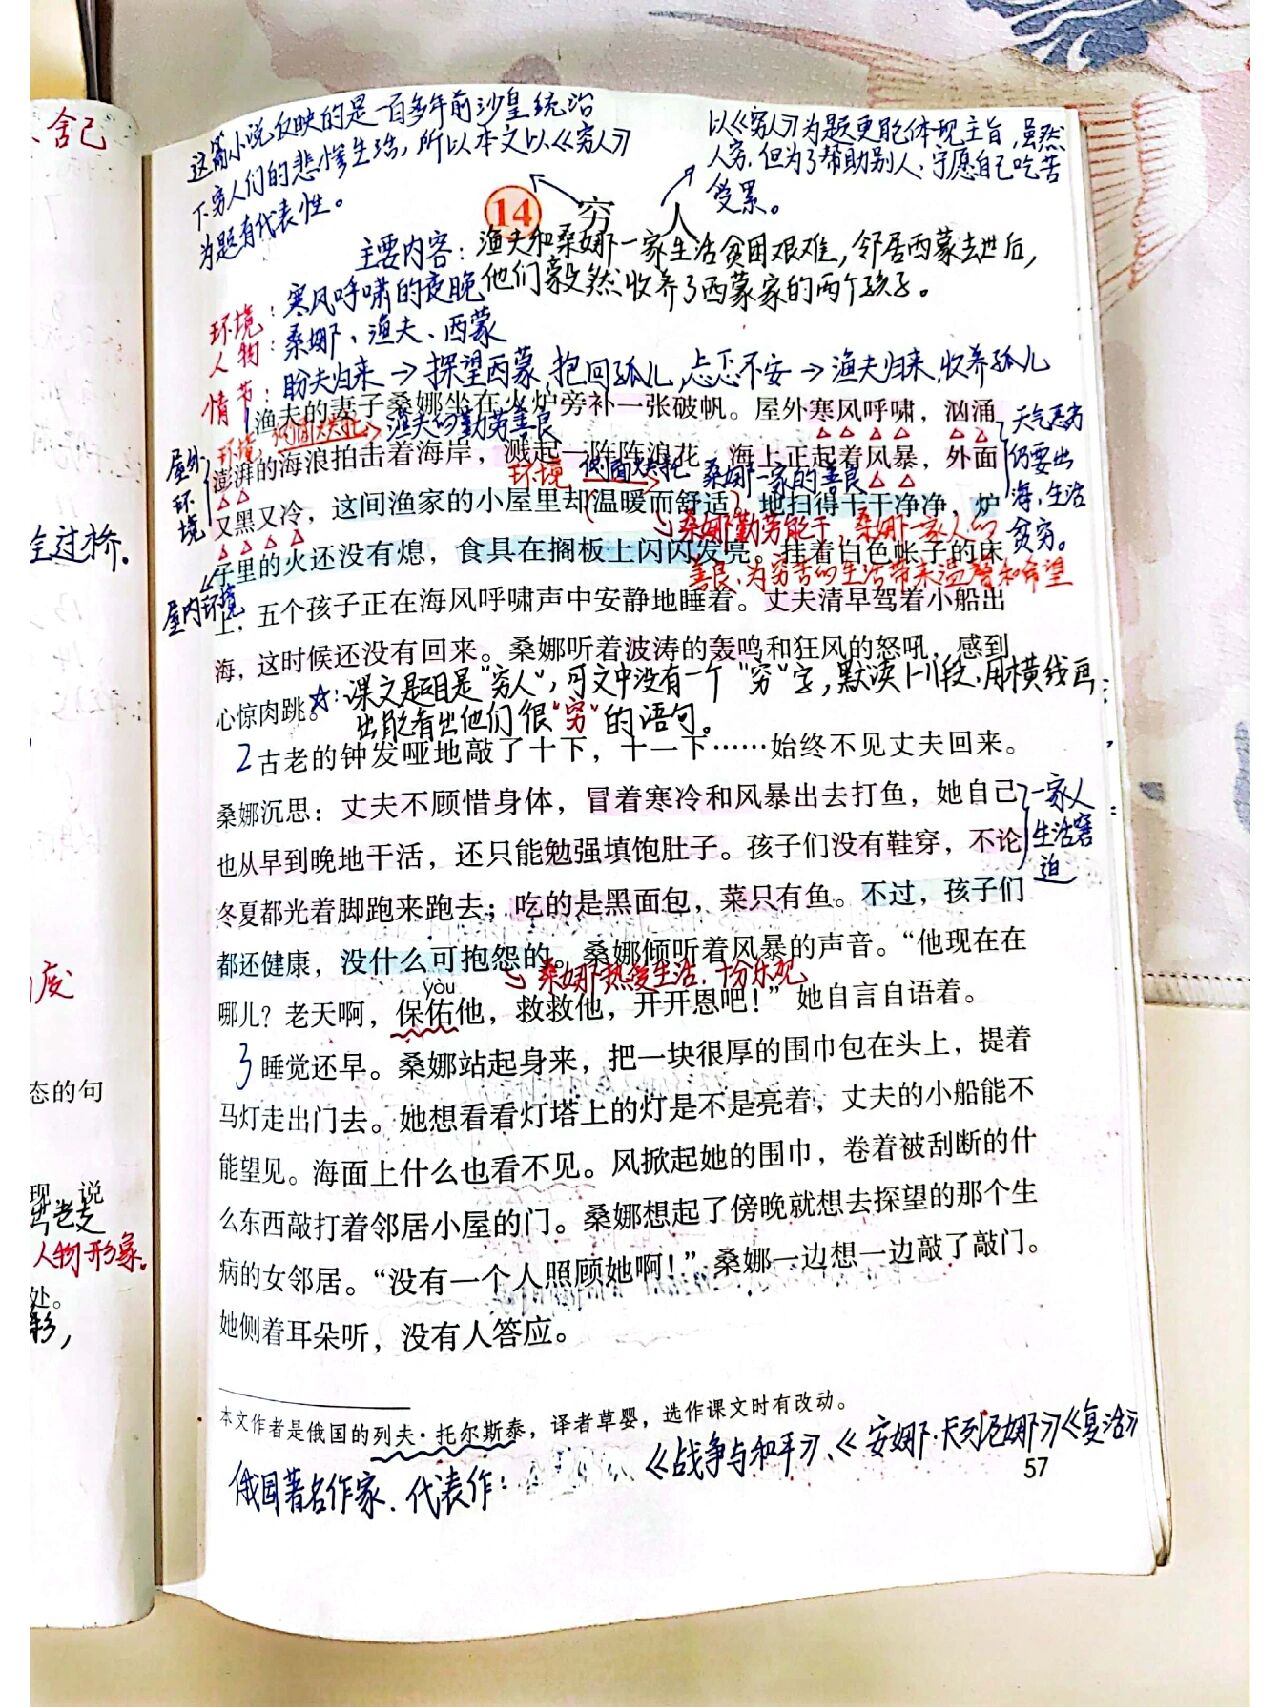 这篇小说反映的是一百多年前沙皇统治
下穷人们的悲惨生活，所以本文以《穷人》
为题有代表性。
以《穷人》为题更能体现主旨，虽然
人穷，但为了帮助别人，宁愿自己吃苦
受累。
14 穷 人
主要内容：渔夫和桑娜一家生活贫困艰难，邻居西蒙去世后，
他们毅然收养了西蒙家的两个孩子。
环境：寒风呼啸的夜晚
人物：桑娜、渔夫、西蒙
情节：盼夫归来→探望西蒙，抱回孤儿，忐忑不安→渔夫归来，收养孤儿
1渔夫的妻子桑娜坐在火炉旁补一张破帆。屋外寒风呼啸，汹涌
环境 侧面衬托 渔夫的勤劳善良
澎湃的海浪拍击着海岸，溅起一阵阵浪花。海上正起着风暴，外面
环境 侧面衬托 桑娜一家的善良
又黑又冷，这间渔家的小屋里却温暖而舒适。地扫得干干净净，炉
桑娜勤劳能干，桑娜一家人的
子里的火还没有熄，食具在搁板上闪闪发亮。挂着白色帐子的床
善良，为穷苦的生活带来温馨和希望
上，五个孩子正在海风呼啸声中安静地睡着。丈夫清早驾着小船出
海，这时候还没有回来。桑娜听着波涛的轰鸣和狂风的怒吼，感到
心惊肉跳。
屋外
环境
屋内环境
天气恶劣
仍要出
海，生活
贫穷。
☆：课文题目是“穷人”，可文中没有一个“穷”字，默读1-11段，用横线画
出能看出他们很“穷”的语句。
2古老的钟发哑地敲了十下，十一下……始终不见丈夫回来。
桑娜沉思：丈夫不顾惜身体，冒着寒冷和风暴出去打鱼，她自己
也从早到晚地干活，还只能勉强填饱肚子。孩子们没有鞋穿，不论
冬夏都光着脚跑来跑去；吃的是黑面包，菜只有鱼。不过，孩子们
都还健康，没什么可抱怨的。桑娜倾听着风暴的声音。“他现在在
桑娜热爱生活，十分乐观
yòu
哪儿？老天啊，保佑他，救救他，开开恩吧！”她自言自语着。
一家人
生活窘
迫
3睡觉还早。桑娜站起身来，把一块很厚的围巾包在头上，提着
马灯走出门去。她想看看灯塔上的灯是不是亮着，丈夫的小船能不
能望见。海面上什么也看不见。风掀起她的围巾，卷着被刮断的什
么东西敲打着邻居小屋的门。桑娜想起了傍晚就想去探望的那个生
病的女邻居。“没有一个人照顾她啊！”桑娜一边想一边敲了敲门。
她侧着耳朵听，没有人答应。
本文作者是俄国的列夫·托尔斯泰，译者草婴，选作课文时有改动。
俄国著名作家，代表作：《战争与和平》、《安娜·卡列尼娜》《复活》
57
舍己
过桥.
态的句
现，说
人物形象。
处。